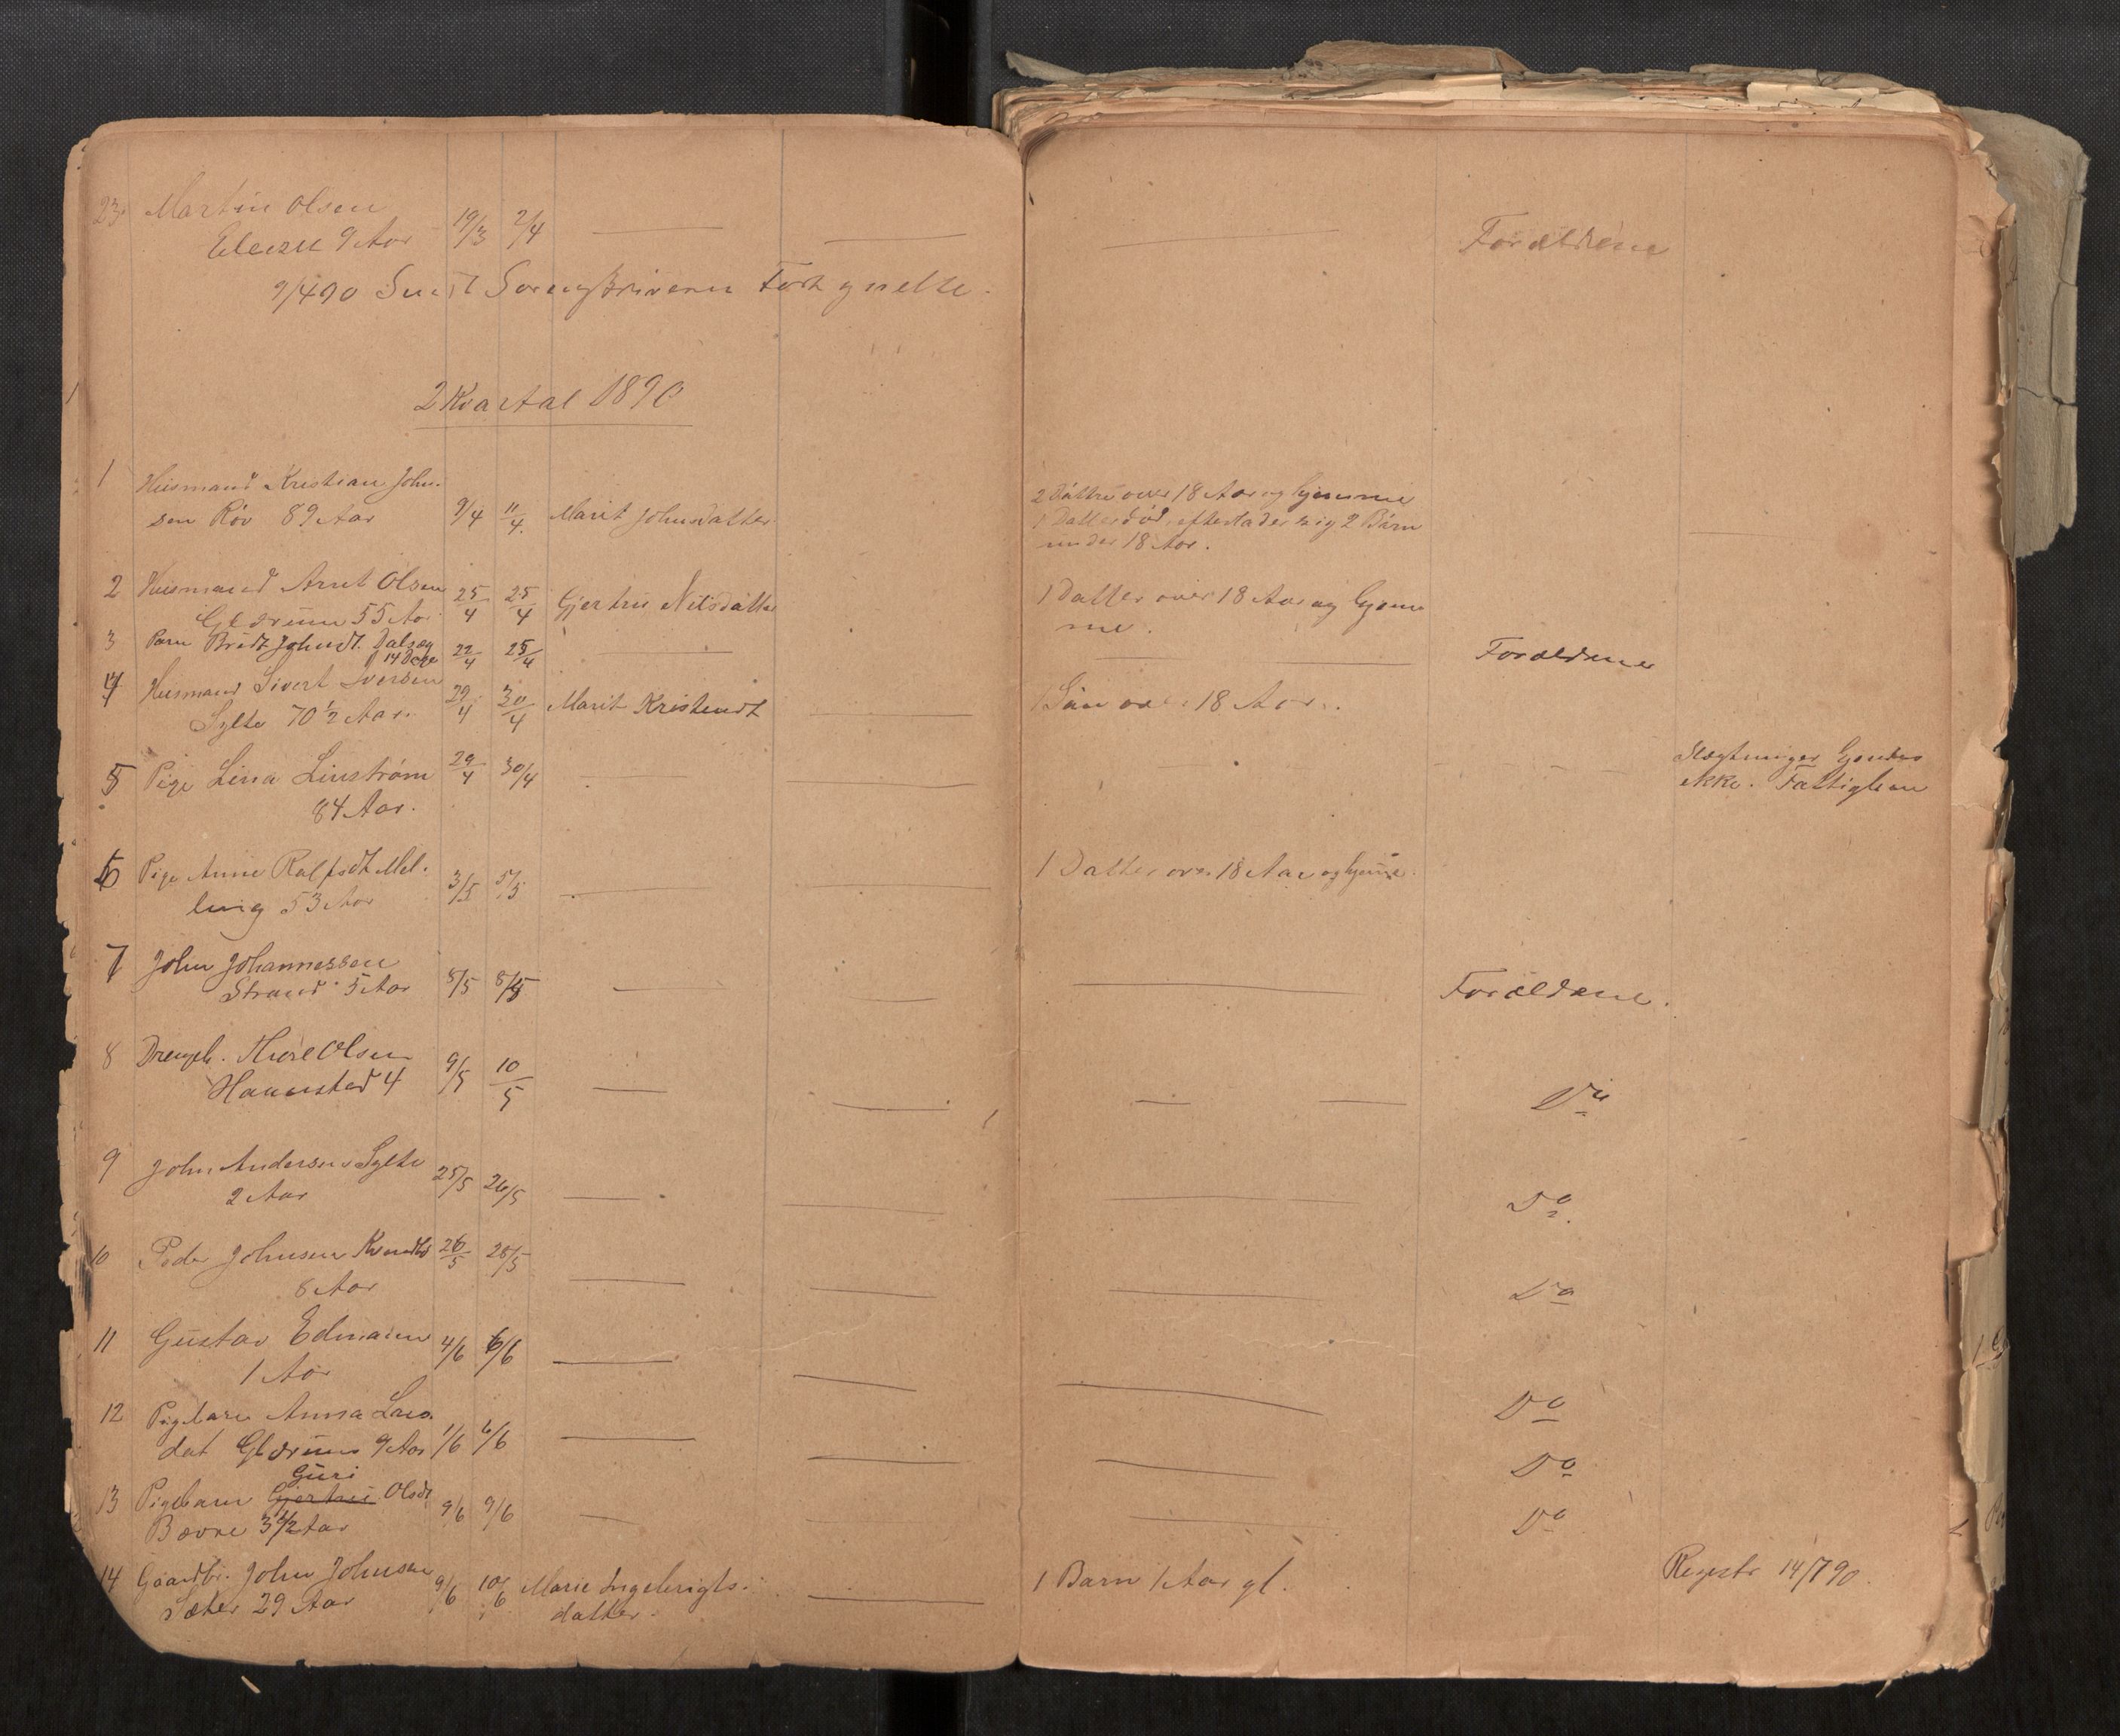 23 Martin Olsen
9 Aar 19/3 2/4 Forældrene
9/4 90 Sendt Sorenskriveren Fortegnelse.
2 Kvartal 1890
1 Husmand Kristian John-
sen Röv 89 Aar 9/4 11/4. Marit Johnsdatter
2 Döttre over 18 Aar og hjemme
1 Datter död, efterlader sig 2 Börn
under 18 Aar.
2 Husmand Arnt Olsen 25/4 25/4 Gjertru Nilsdatter
Glærum 55 Aar
1 Datter over 18 Aar og hjem
me.
3 Barn Johnsdt. Dalsæg
14 Dage 22/4 25/4 Forældrene
4 Husmand Sivert Iversen
Sylte 70 1/2 Aar. 29/4 30/4 Marit Kristendt
1 Sön over 18 Aar.
5 Pige Lina Linström 29/4 30/4
84 Aar.
Slægtninger
ikke. Fattiglem
6 Pige Anne Mel-
ling 53 Aar 3/5 5/5
1 Datter over 18 Aar og hjemme.
7 John Johannessen
Strand 5 Aar 8/5 8/5 Forældrene.
8 Drengeb. Olsen
Hannstad 4 9/5 10/5
9 John Andersen Sylte
2 Aar 25/5 26/5 Do.
10 Peder Johnsen 26/5 28/5
8 Aar Do
11 Gustav
1 Aar 4/6 6/6 Do
12 Pigebarn Anna Lars
dat Glærum 9 Aar 1/6 6/6 Do
Guri
13 Pigebarn Gjertru Olsdt
Bævre 3 1/2 Aar 9/6 9/6 Do
14 Gaardbr. John Johnsen
Sæter 29 Aar 9/6 10/6 Marie Ingebrigts-
datter.
1 Barn 1 Aar gl. Registr 14/7 90.